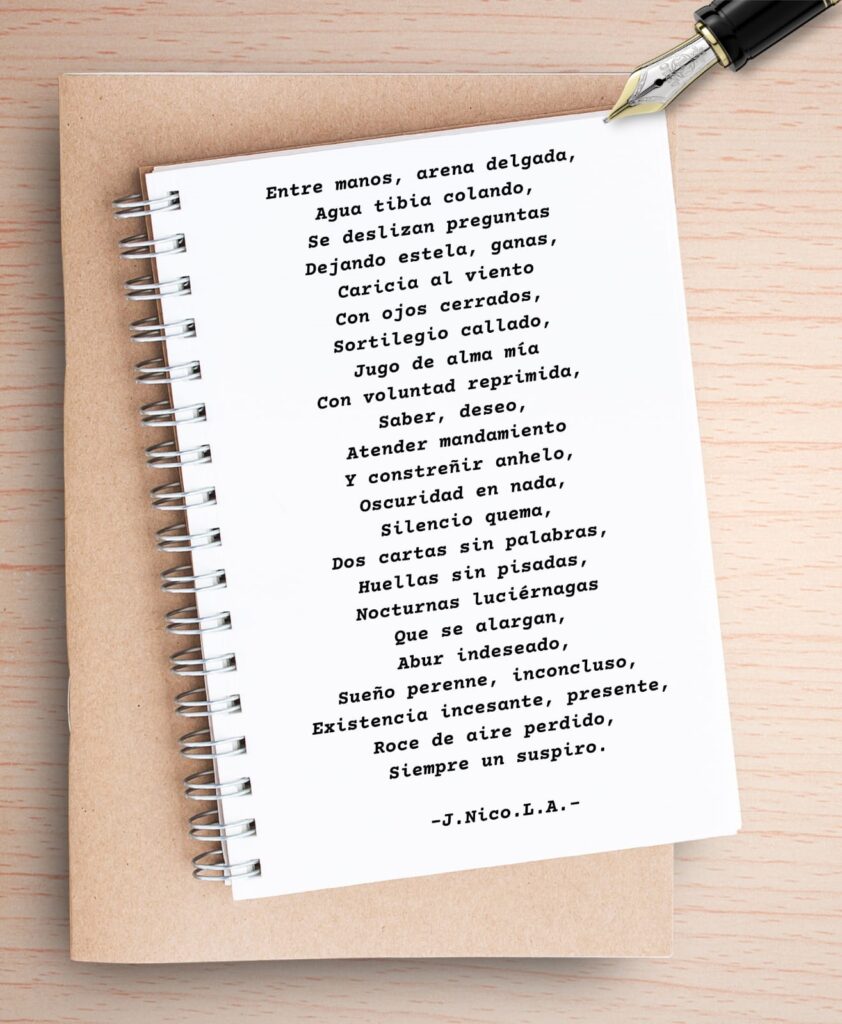 Entre manos, arena delgada,
Agua tibia colando,
Se deslizan preguntas
Dejando estela, ganas,
Caricia al viento
Con ojos cerrados,
Sortilegio callado,
Jugo de alma mía
Con voluntad reprimida,
Saber, deseo,
Atender mandamiento
Y constreñir anhelo,
Oscuridad en nada,
Silencio quema,
Dos cartas sin palabras,
Huellas sin pisadas,
Nocturnas luciérnagas
Que se alargan,
Abur indeseado,
Sueño perenne, inconcluso,
Existencia incesante, presente,
Roce de aire perdido,
Siempre un suspiro.
-J.Nico.L.A.-